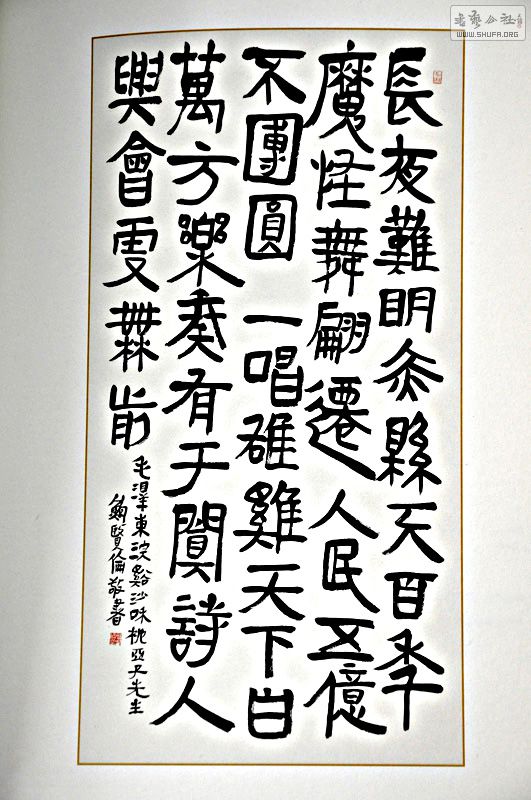 長夜難明赤縣天百年
魔怪舞翩遷人民五億
不團圓一唱雄雞天下白
萬方樂奏有于闐詩人
興會更無前
毛澤東浣谿沙咊柳亞子先生
鮑賢倫敬書
书艺公社
WWW.SHUFA.ORG